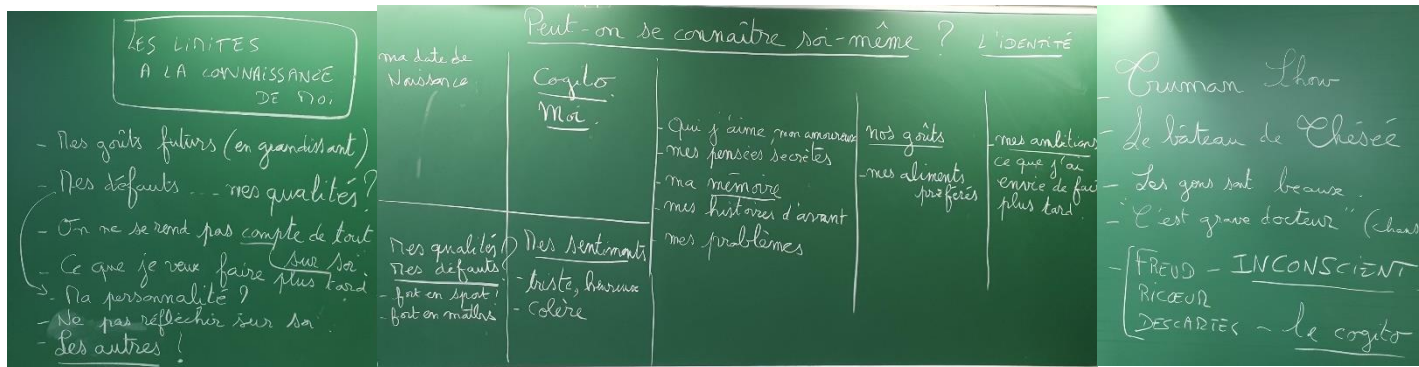 LES LIMITES
A LA CONNAISSANCE
DE MOI
- Mes goûts futurs (en grandissant)
- Mes défauts .... mes qualités ?
- On ne se rend pas compte de tout
sur soi.
- Ce que je veux faire plus tard
- Ma personnalité ?
- Ne pas réfléchir sur soi.
- Les autres !
Peut-on se connaître soi-même ? L'IDENTITÉ
ma date de
Naissance
Mes qualités ?
Mes défauts ?
- fort en sport !
- fort en maths
Cogito
Moi.
Mes sentiments
- triste, heureux
- colère
- Qui j'aime mon amoureux
- mes pensées secrètes
- ma mémoire
- mes histoires d'avant
- mes problèmes
nos goûts
- mes aliments
préférés
mes ambitions
ce que j'ai
envie de fai
plus tard.
- Truman Show
- Le bâteau de Thésée
- Les gens sont beaux.
- "C'est grave docteur" (chans
- FREUD - INCONSCIENT
RICŒUR
DESCARTES - le cogito